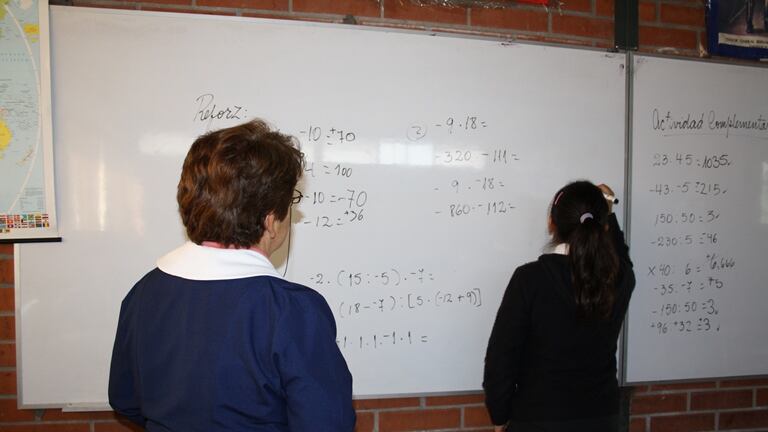 Reforz:
-10 = +70
4 = 100
-10 = -70
-12 = +36
2) -9 · 18 =
-320 · -111 =
-9 · -18 =
-860 · -112 =
-2 · (15 : -5) · -7 =
(18 - -7) : [5 · (-12 + 9)]
-1 · 1 · 1 · -1 · 1 =
Actividad Complementa
23 · 45 = 1035
-43 · -5 = 215
150 : 50 = 3
-230 : 5 = 46
x 40 : 6 = +6,666
-35 : -7 = +5
-150 : 50 = 3
+96 +32 = +3